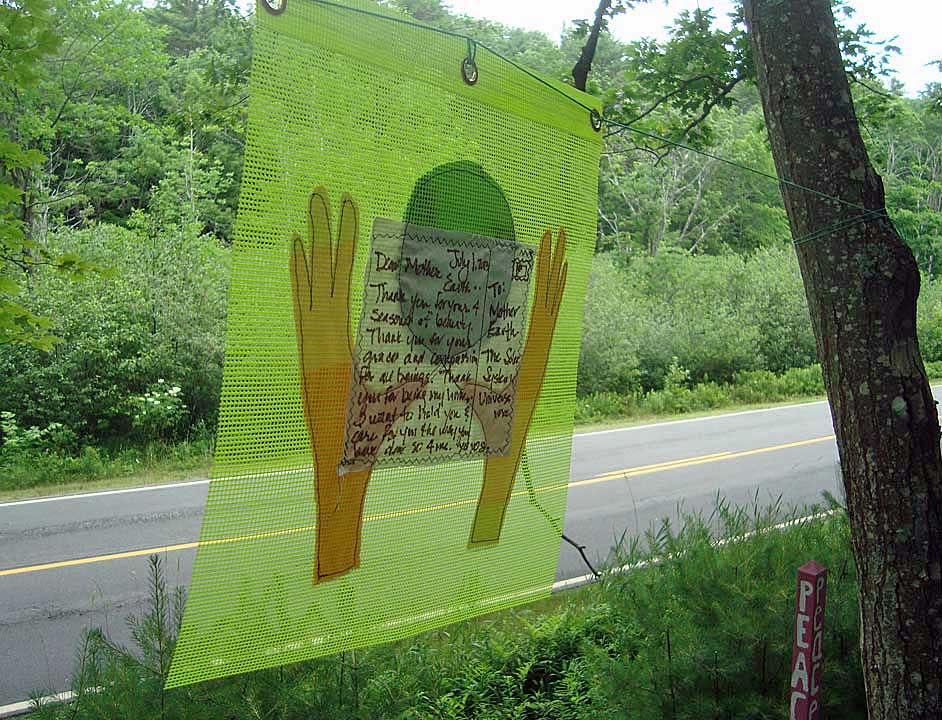 Dear Mother July 1,
Earth..
Thank you for your 4
seasons of beauty.
Thank you for your
graces and compassion
for all beings. Thank
you for being my home,
I want to hold you &
care for you the way you
have done so 4 me.
To:
Mother
Earth
The Solar
System
Universe
PEAC
Peace